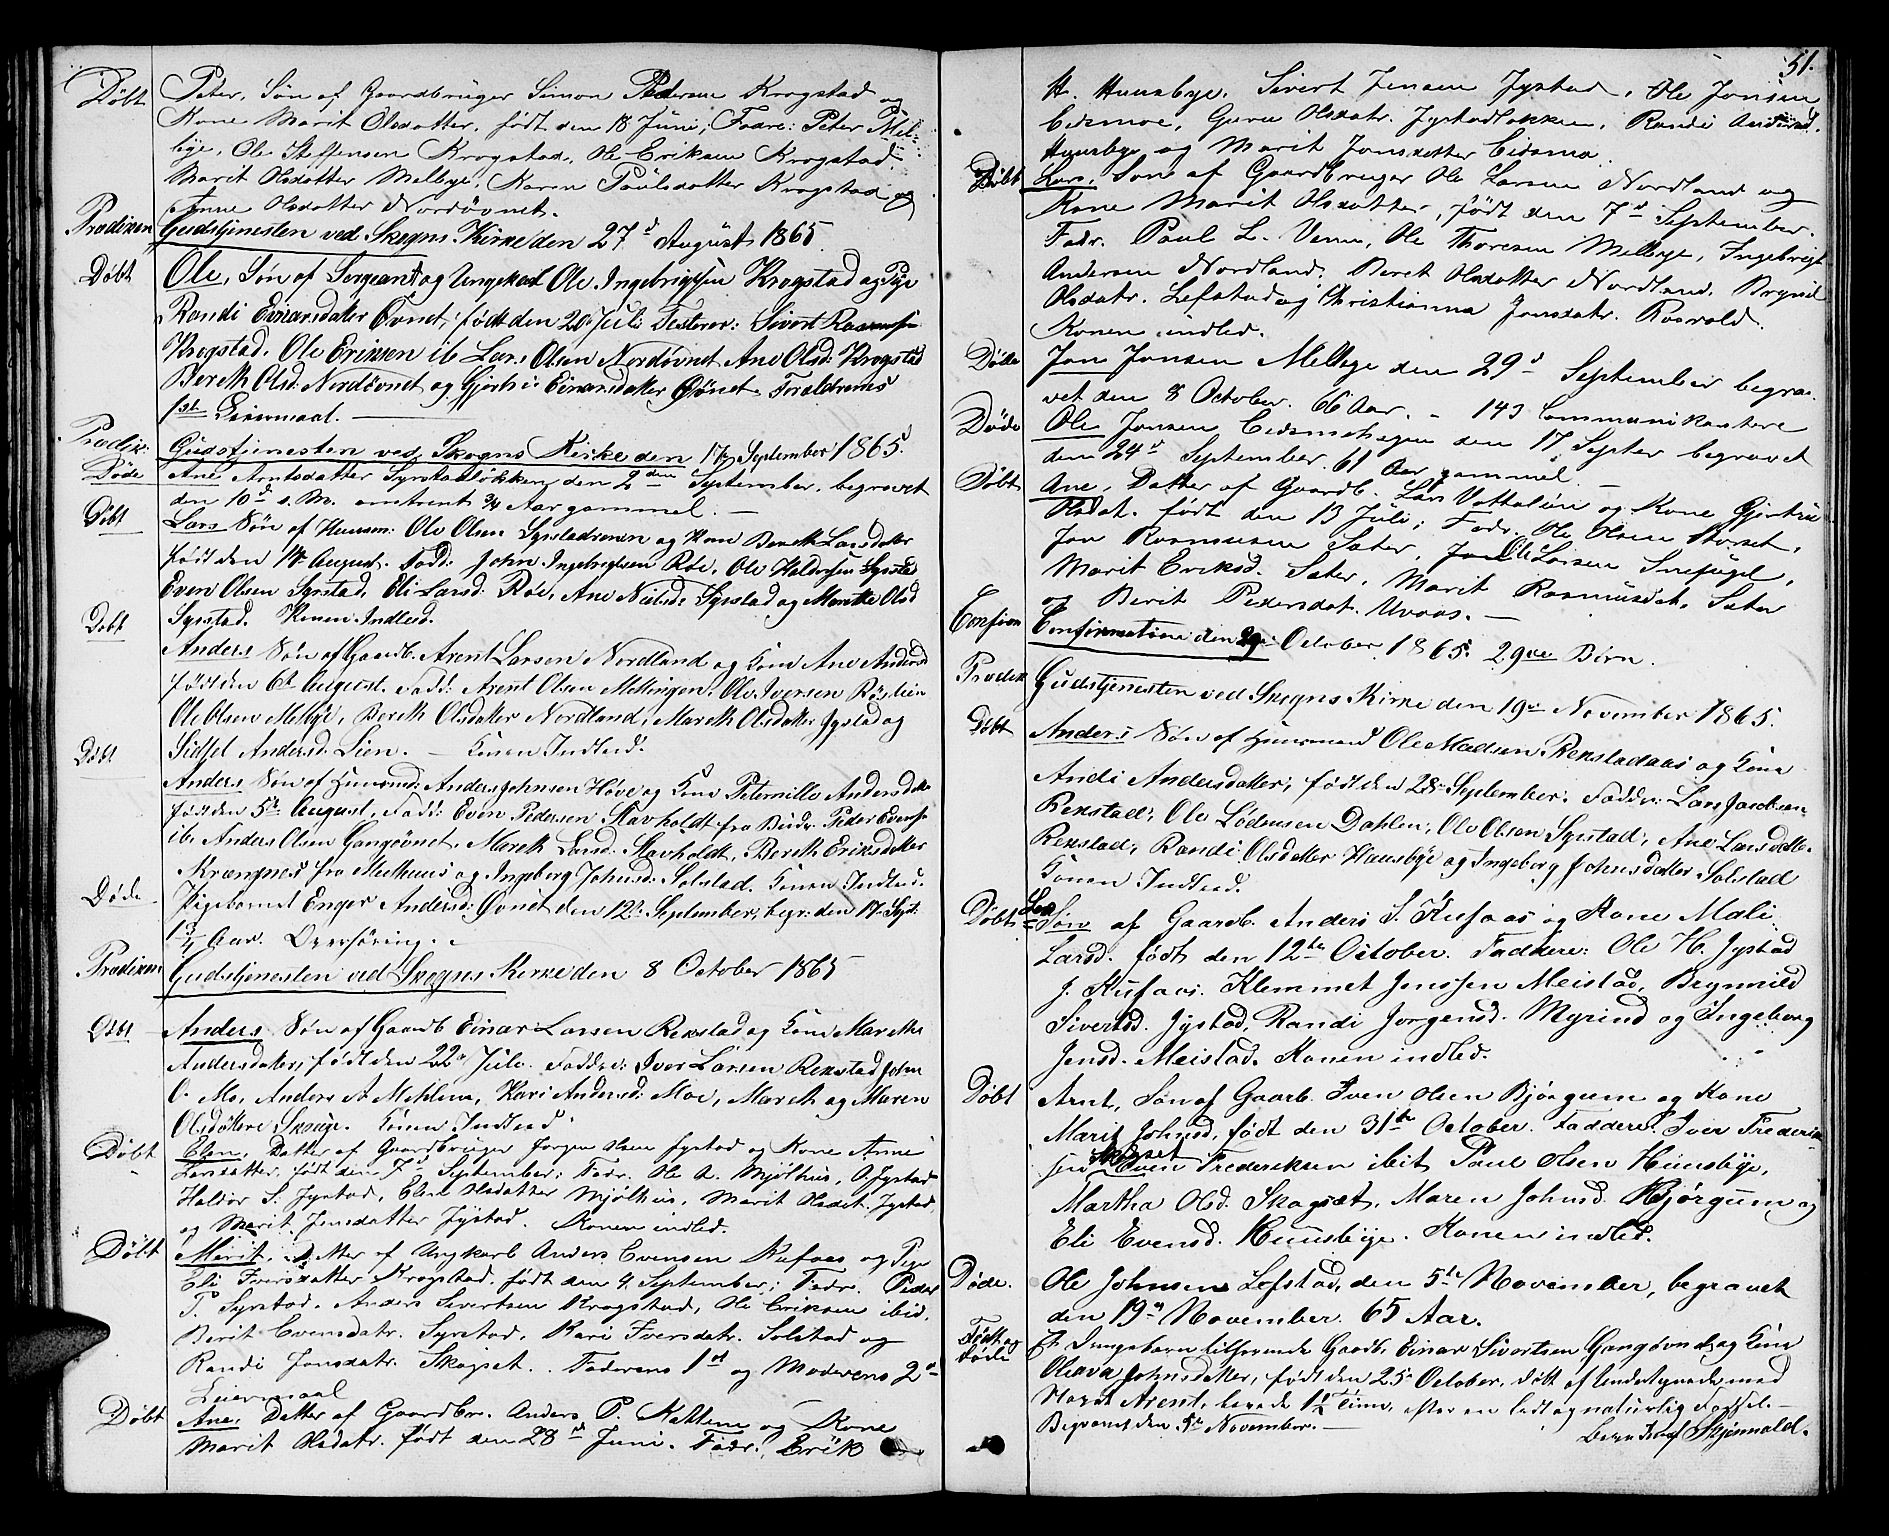 Døbt Peter, Søn af Gaardbruger Simon Pedersen Krogstad og
Kone Marit Olsdatter, født den 18 Juni; Fadre: Peter Mel-
bye, Ole Steffensen Krogstad, Ole Eriksen Krogstad
Marit Olsdatter Melbye, Karen Paulsdatter Krogstad og
Anne Olsdatter Nordøvnet.
Prædiken Gudstjenesten ved Skogns Kirke den 27d August 1865
Døbt Ole, Søn af Sergeant og Ungekarl Ole Ingebrigtsen Krogstad og Pige
Randi Einarsdatter Øvnet, født den 20 Juli Testerer: Sivert Rasmusen
Krogstad, Ole Eriksen ib Lars Olsen Nordøvnet Ane Olsd: Krogstad
Bereth Olsd: Nordøvnet og Gjertri Einarsdatter Øvnet. Foraldrenes
1ste Leiermaal.
Prædik: Gudstjenesten ved Skogns Kirke den 17 September 1865.
Døde Ane Arntsdatter Syrstadløkken, den 2den September, begravet
den 10d s. M. omtrent ¾ Aar gammel. —
Døbt Lars Søn af Huusm: Ole Olsen Syrstadreren og Kone Bereth Larsdatter
født den 14 August. Fadd: John Ingebrigtsen Røe, Ole Haldorsen Syrstad
Even Olsen Syrstad, Eli Larsd: Røe, Ane Nielsd: Syrstad og Marethe Olsd
Syrstad. Konen Indled.
Døbt Anders Søn af Gaardb. Arent Larsen Nordland og Kone Ane Andersd
født den 6te August. Fadd: Arent Olsen Mellingen, Ole Iversen
Ole Olsen Melbye, Bereth Olsdatter Nordland, Mareth Olsdatter Jystad og
Sidsel Andersd. Lien. — Konen Indled.
Døbt Anders Søn af Husmand: Anders Johnsen Hove og Kone Peternille Andersdatter
født den 5te August, Fadd: Even Pedersen Stavholdt fra Peder Evens
ib. Anders Olsen Gangøvnet, Mareth Larsd. Stavholdt, Bereth Eriksdatter
Krængnes fra Melhuus og Ingeborg Johnsd. Solstad. Konen Indled.
Døde Pigebarnet Enger Andersd: Øvnet den 12te September, begr: den 17 Sept:
1¾ Aar.
Prædiken Gudstjenesten ved Skogns Kirke den 8 October 1865
Døbt Anders Søn af Gaardb Einar Larsen Rekstad og Kone Mareth
Andersdatter, født den 22 Juli. Faddre: Iver Larsen Rekstad John
O. Mo, Anders A Mehlem, Kari Andersd: Moe, Mareth og Maren
Olsdøttere Skauge. Konen Indled.
Døbt Elen, Datter af Gaardbruger Jørgen Olsen Jystad og Kone Anne
Larsdatter, født den 7de September; Fadr. Ole A. Mjølhus, O. Jystad
Haldor S. Jystad, Elen Olsdatter Mjølhus, Marit Olsdat. Jystad
og Marit Jensdatter Jystad. Konen indled.
Døbt Marit, Datter af Ungkarl Anders Evensen Kufaas og Pige
Eli Iversdatter Krogstad, født den 4. September; Fadr. Peder
P. Syrstad, Anders Sivertsen Krogstad, Ole Eriksen ibid,
Berit Evensdatr. Syrstad, Kari Iversdatr. Solstad og
Randi Jonsdatr. Skogset. Faderens 1st og Moderens 2d
Leiermaal
Døbt Ane, Datter af Gaardbr. Anders P. Kattem og Kone
Marit Olsdatr. født den 28de Juni. Fadr. Erik
51.
H. Huusbye, Sivert Jensen Jystad, Ole Jonsen
Eidsmoe, Guru Olsdatr. Jystadløkken, Randi Andersd.
Huusbye og Marit Jonsdatter Eidsmo.
Døbt Lars, Søn af Gaardbruger Ole Larsen Nordland og
Kone Marit Olsdatter, født den 7d September.
Fadr. Paul L. Venn, Ole Thoresen Melbye, Ingebrigt
Andersen Nordland; Beret Olsdatter Nordland, Brynild
Olsdatr. Lefstad og Christianna Jonsdatr. Rosvold.
Konen indled.
Døde Jon Jonsen Melbye den 29d September begra-
vet den 8 October. 66 Aar. — 143 Communikantere
Døde Ole Jonsen Eidsmohagen den 17 Septbr begravet
den 24d September. 61 Aar gammel. —
Døbt Ane, Datter af Gaardb. Lars Vottaløen og Kone Gjertrud
Olsdat. født den 13 Juli; Fadr. Ole Olsen Storset,
Jon Rasmusen Sæter, Ole Larsen Snefugel,
Marit Eriksd. Sæter, Marit Rasmusdat. Sæter
og Berit Pedersdat. Uvaas. —
Confirm Confirmation den 29 October 1865. 29ve Børn.
Prædik Gudstjenesten ved Skogns Kirke den 19de November 1865.
Døbt Anders Søn af Huusmand Ole Madsen Rekstadaas og Kone
Andi Andersdatter, født den 28 September. Faddr: Lars Jacobsen
Rekstad, Ole Lødensen Dahlen, Ole Olsen Syrstad, Ane Larsdatter
Rekstad, Randi Olsdatter Huusbye og Ingeborg Johnsdatter Solstad
Konen Indled.
Døbt Søn af Gaardb. Anders S. Kufaas og Kone Mali
Larsd. født den 12te October. Faddere: Ole H. Jystad
J. Kufaas. Klemmet Jenssen Meistad, Brynnild
Sivertsd. Jystad, Randi Jørgensd. Myrind og Ingeborg
Jensd. Meistad. Konen indled.
Døbt Arnt, Søn af Gaarb. Iven Olsen Bjørgum og Kone
Marit Johnsd, født den 31te October. Faddere. Iver Frederik
sen Skogset Even Frederiksen ibit, Paul Olsen Huusbye,
Martha Olsd. Skogsæt, Maren Johnsd. Bjørgum og
Eli Evensd. Huusbye. Konen indled.
Døde. Ole Johnsen Lefstad, den 5te November, begravet
den 19de November. 65 Aar.
Født og Døde Et Drengebarn tilhørende Gaardb. Einar Sivertsen Gangøvnet og Kone
Olava Johnsdatter, født den 25 October, døbt af Undertegnede med
Navnet Arent, levede 1½ Time, efter en let og naturlig Fødsel. —
Begravet den 5te November. —
Skjønvald.